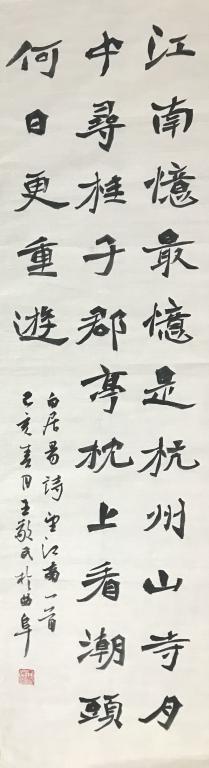 江南憶最憶是杭州山寺月
中尋桂子郡亭枕上看潮頭
何日更重遊
白居易詩望江南一首
己亥春月王敬民於曲阜